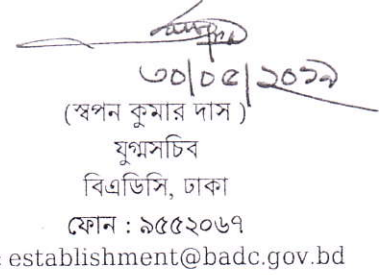 ৩০|০৫|২০১৯
(স্বপন কুমার দাস )
যুগ্মসচিব
বিএডিসি, ঢাকা
ফোন : ৯৫৫২০৬৭
: establishment@badc.gov.bd